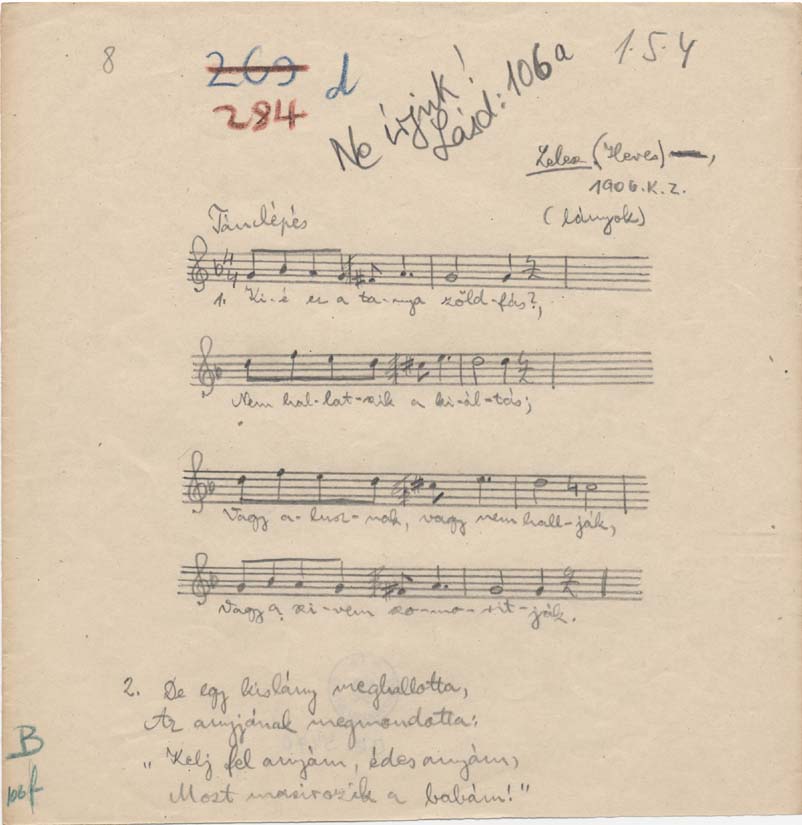 8
269 d
284
Ne írjuk!
Lásd: 106a
1.5.4
Zelez (Heves),
1906. K. Z.
(lányok)
Tánclépés
4/4
1. Ki-é ez a ta-nya zöld-fás?,
Nem hal-lat-szik a ki-ál-tás;
Vagy a-lusz-nak, vagy nem hall-ják,
Vagy a szi-vem szo-mo-rit-ják.
2. De egy kislány meghallotta,
Az anyjának megmondotta:
„Kelj fel anyám, édes anyám,
Most masirozik a babám!"
B
106f